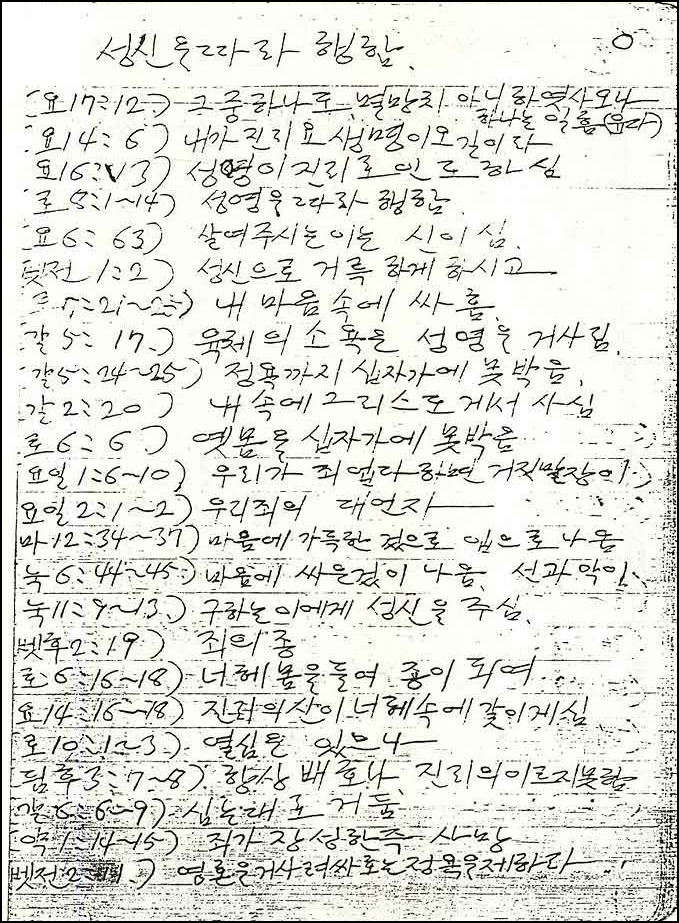 성신을 따라 행함.
(요17:12) 그중 하나도 멸망치 아니하엿사오나
하나는 일흠 (유다)
(요14:6) 내가 진리요 생명이오 길이다
요16:13) 성영이 진리로 인도하심
(로8:1~14) 성영을 따라 행함.
(요6:63) 살여주시는 이는 신이심.
벳전1:2) 성신으로 거륵하게 하시고
내 마음속에 싸흠.
(갈5:17) 육체의 소욕은 성영을 거사림.
(갈5:24~25) 정욕까지 십자가에 못박음.
(갈2:20) 내 속에 그리스도게서 사심
(로6:6) 옛몸을 십자가에 못박음
(요일1:6~10) 우리가 죄 업다 하면 거짓말장이
요일2:1~2) 우리죄의 대언자
마12:34~37) 마음에 가득한 것으로 입으로 나옴
눅6:44~45) 마음에 싸은것이 나옴. 선과 악이
눅11:9~13.) 구하는 이에게 성신을 주심.
벳후2:19) 죄의 종
(로6:16~18) 너헤 몸을 들여 종이 되여
(요14:16~18) 진리의 신이 너헤 속에 같이 게심
(로10:1~3) 열심은 있으나
(딤후3:7~8) 항상 배호나 진리의 이르지 못함
(갈6:6~9) 심는대로 거둠
(약1:14~15) 죄가 장성한즉 사망
벳전2:11.) 영혼을 거사려 싸호는 정욕을 제하다